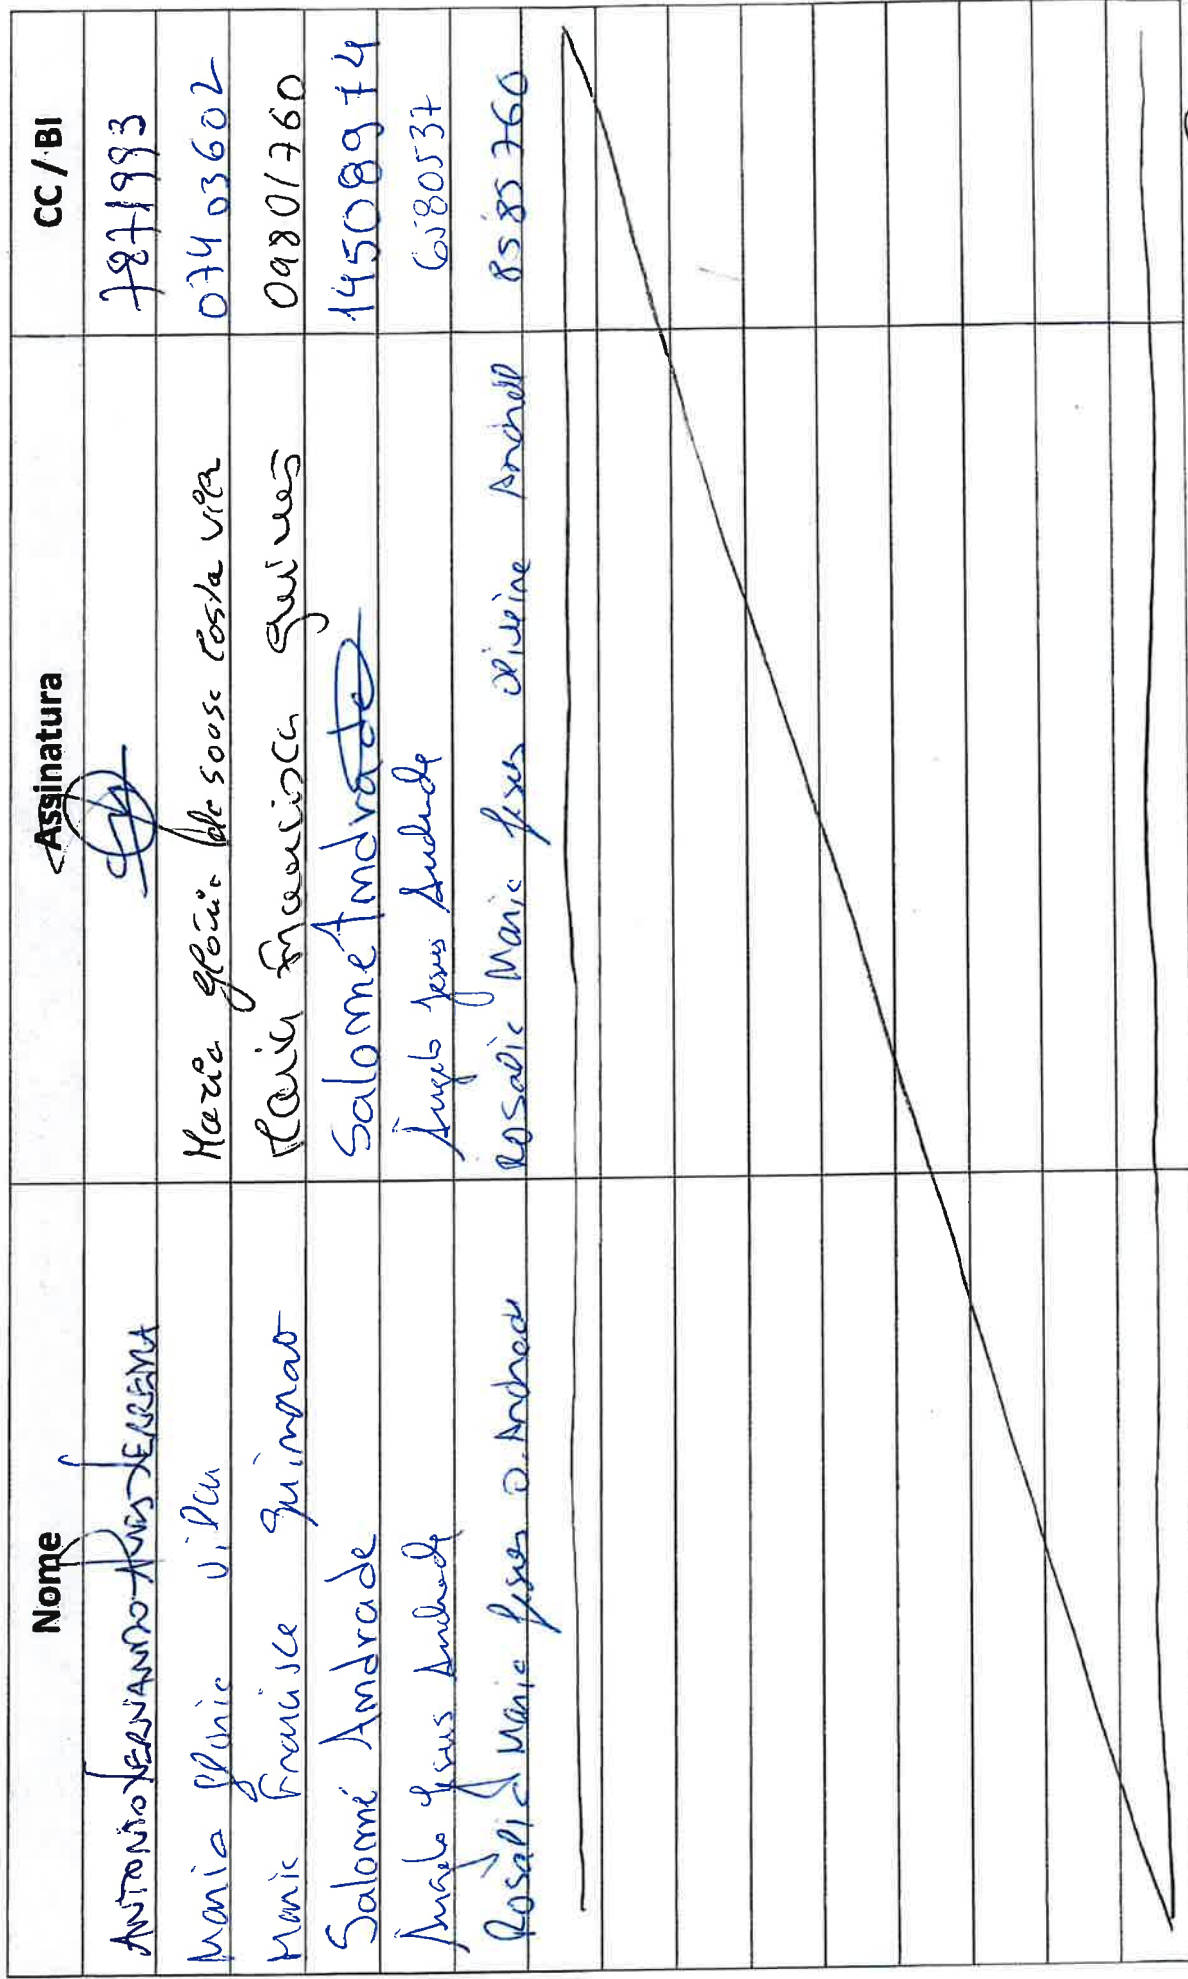 Nome Assinatura CC / BI
ANTONIO FERNANDO ALVES FERREIRA 7871993
Maria Glória Vilar Maria Glória da Sousa Costa Vilar 07403602
Maria Francisca Guimarão Maria Francisca 09801760
Salomé Andrade Salomé Andrade 14508974
Ângelo Jesus Andrade Ângelo Jesus Andrade 6580537
Rosália Maria Jesus O. Andrade Rosalia Maria Jesus Oliveira Andrade 8585760